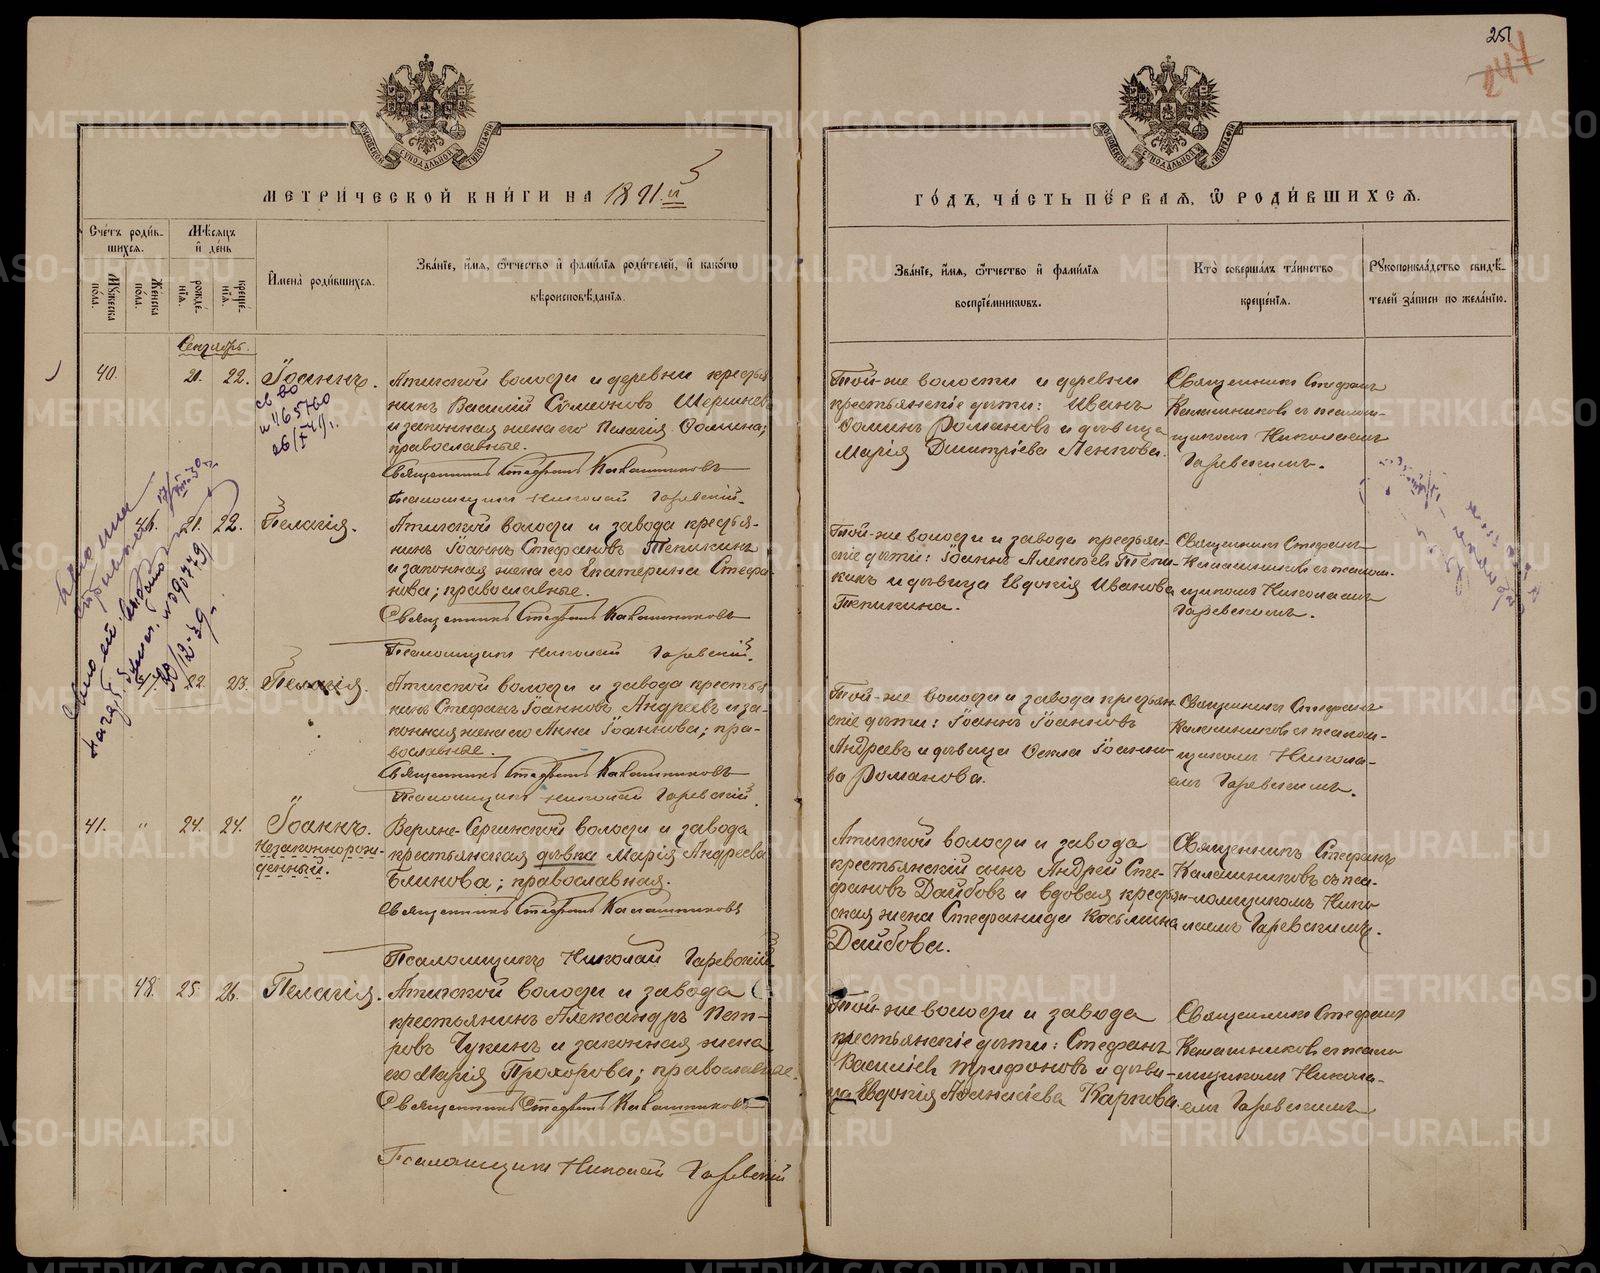 251
247
МЕТРИ́ЧЕСКОЙ КНИ́ГИ НА 1891 й
ГО́ДЪ, ЧА́СТЬ ПЕ́РВАЯ, Ѿ РОДИ́ВШИХСЯ.
Сче́тъ роди́в-
шихся.
Мѣ́сяцъ
и де́нь
Му́жеска
по́ла.
Же́нска
по́ла.
рожде́-
нїя.
креще́-
нїя.
И҆мена̀ роди́вшихся.
Зва́нїе, и҆́мя, ѻ҆́тчество и҆ фами́лїя роди́телей, и҆ како́гѡ
вѣроисповѣ́данїя.
Зва́нїе, и҆́мя, ѻ҆́тчество и҆ фами́лїя
воспрїе́мникѡвъ.
Кто̀ соверша́лъ та́инство
креще́нїя.
Рꙋкоприкла́дство свидѣ́-
телей за́писи по жела́нїю.
Сентябрь.
40. 21. 22. Іоаннъ.
Атигской волости и деревни крестья
нинъ Василій Сѵмеоновъ
и законная жена его Пелагія Ѳомина;
православные.
Священникъ Стефанъ Калашниковъ
Псаломщикъ Николай Гаревскій.
Той-же волости и деревни
крестьянскіе дѣти: Иванъ
Ѳоминъ Романовъ и дѣвица
Марія Димитріева
Священникъ Стефанъ
Калашниковъ съ псалом-
щикомъ Николаемъ
Гаревскимъ.
21. 22. Пелагія.
Атигской волости и завода крестья-
нинъ Іоаннъ Стефановъ Пепикинъ
и законная жена его Екатерина Стефа-
нова; православные.
Священникъ Стефанъ Калашниковъ
Псаломщикъ Николай Гаревскій.
Той-же волости и завода крестьян-
скіе дѣти: Іоаннъ Алексѣевъ Пепи-
кинъ и дѣвица Евдокія Иванова
Пепикина.
Священникъ Стефанъ
Калашниковъ съ псалом-
щикомъ Николаемъ
Гаревскимъ.
22. 23. Пелагія.
Атигской волости и завода крестья
нинъ Стефанъ Іоанновъ Андреевъ и за-
конная жена его Анна Іоаннова; пра-
вославные.
Священникъ Стефанъ Калашниковъ
Псаломщикъ Николай Гаревскій.
Той-же волости и завода крестьян
скіе дѣти: Іоаннъ Іоанновъ
Андреевъ и дѣвица Ѳекла Іоанно-
ва Романова.
Священникъ Стефанъ
Калашниковъ съ псалом-
щикомъ Никола-
емъ Гаревскимъ.
41. " 24. 24. Іоаннъ.
Незаконнорож-
денный.
Верхне-Сергинской волости и завода
крестьянская дѣвка Марія Андреева
Блинова; православная.
Священникъ Стефанъ Калашниковъ
Псаломщикъ Николай Гаревскій.
Атигской волости и завода
крестьянскій сынъ Андрей Сте-
фановъ Дайбовъ и вдовая крестьян-
ская жена Стефанида Косьмина
Дайбова.
Священникъ Стефанъ
Калашниковъ съ пса-
ломщикомъ Нико
лаемъ Гаревскимъ.
48. 25 26. Пелагія.
Атигской волости и завода
крестьянинъ Александръ Пет-
ровъ Чукинъ и законная жена
его Марія Прохорова; православные.
Священникъ Стефанъ Калашниковъ
Псаломщикъ Николай Гаревскій
Той-же волости и завода
крестьянскіе дѣти: Стефанъ
Василіевъ Трифоновъ и дѣви-
ца Евдокія Аѳанасіева Карпова
Священникъ Стефанъ
Калашниковъ съ псало
мщикомъ Никола-
емъ Гаревскимъ
METRIKI.GASO-URAL.RU